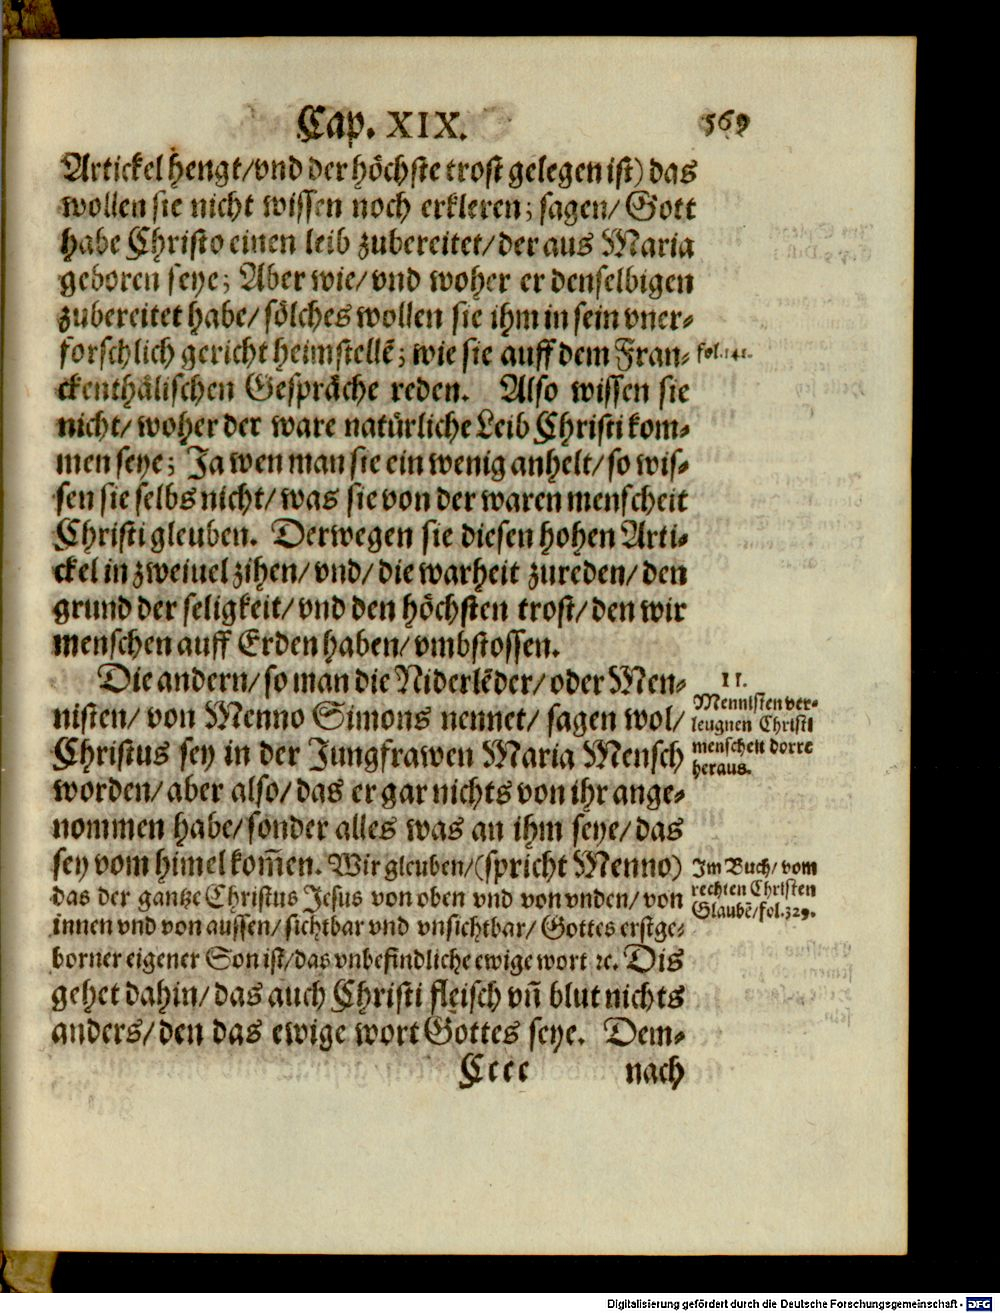 Cap. XIX. 569
Artickel hengt/vnd der höchste trost gelegen ist) das
wollen sie nicht wissen noch erkleren; sagen/ Gott
habe Christo einen leib zubereitet/der aus Maria
geboren seye; Aber wie/ vnd woher er denselbigen
zubereitet habe/ sölches wollen sie ihm in sein vner-
forschlich gericht heimstellē; wie sie auff dem Fran-
fol. 141.
ckenthälischen Gespräche reden. Also wissen sie
nicht/ woher der ware natürliche Leib Christi kom-
men seye; Ja wen man sie ein wenig anhelt/ so wis-
sen sie selbs nicht/ was sie von der waren menscheit
Christi gleuben. Derwegen sie diesen hohen Arti-
ckel in zweiuel zihen/ vnd/ die warheit zureden/ den
grund der seligkeit/ vnd den höchsten trost/ den wir
menschen auff Erden haben/ vmbstossen.
Die andern/ so man die Niderlēder/ oder Men-
nisten/ von Menno Simons nennet/ sagen wol/
Christus sey in der Jungfrawen Maria Mensch
worden/ aber also/ das er gar nichts von ihr ange-
nommen habe/ sonder alles was an ihm seye/ das
sey vom himel kom̄en. Wir gleuben/ (spricht Menno)
das der gantze Christus Jesus von oben vnd von vnden/ von
innen vnd von aussen/ sichtbar vnd vnsichtbar/ Gottes erstge-
borner eigener Son ist/ das vnbefindliche ewige wort ꝛc. Dis
gehet dahin/ das auch Christi fleisch vn̄ blut nichts
anders/ den das ewige wort Gottes seye. Dem-
II.
Mennisten ver-
leugnen Christi
menscheit dorre
heraus.
Im Buch/ vom
rechten Christen
Glaubē/ fol. 329.
Cccc nach
Digitalisierung gefördert durch die Deutsche Forschungsgemeinschaft - DFG